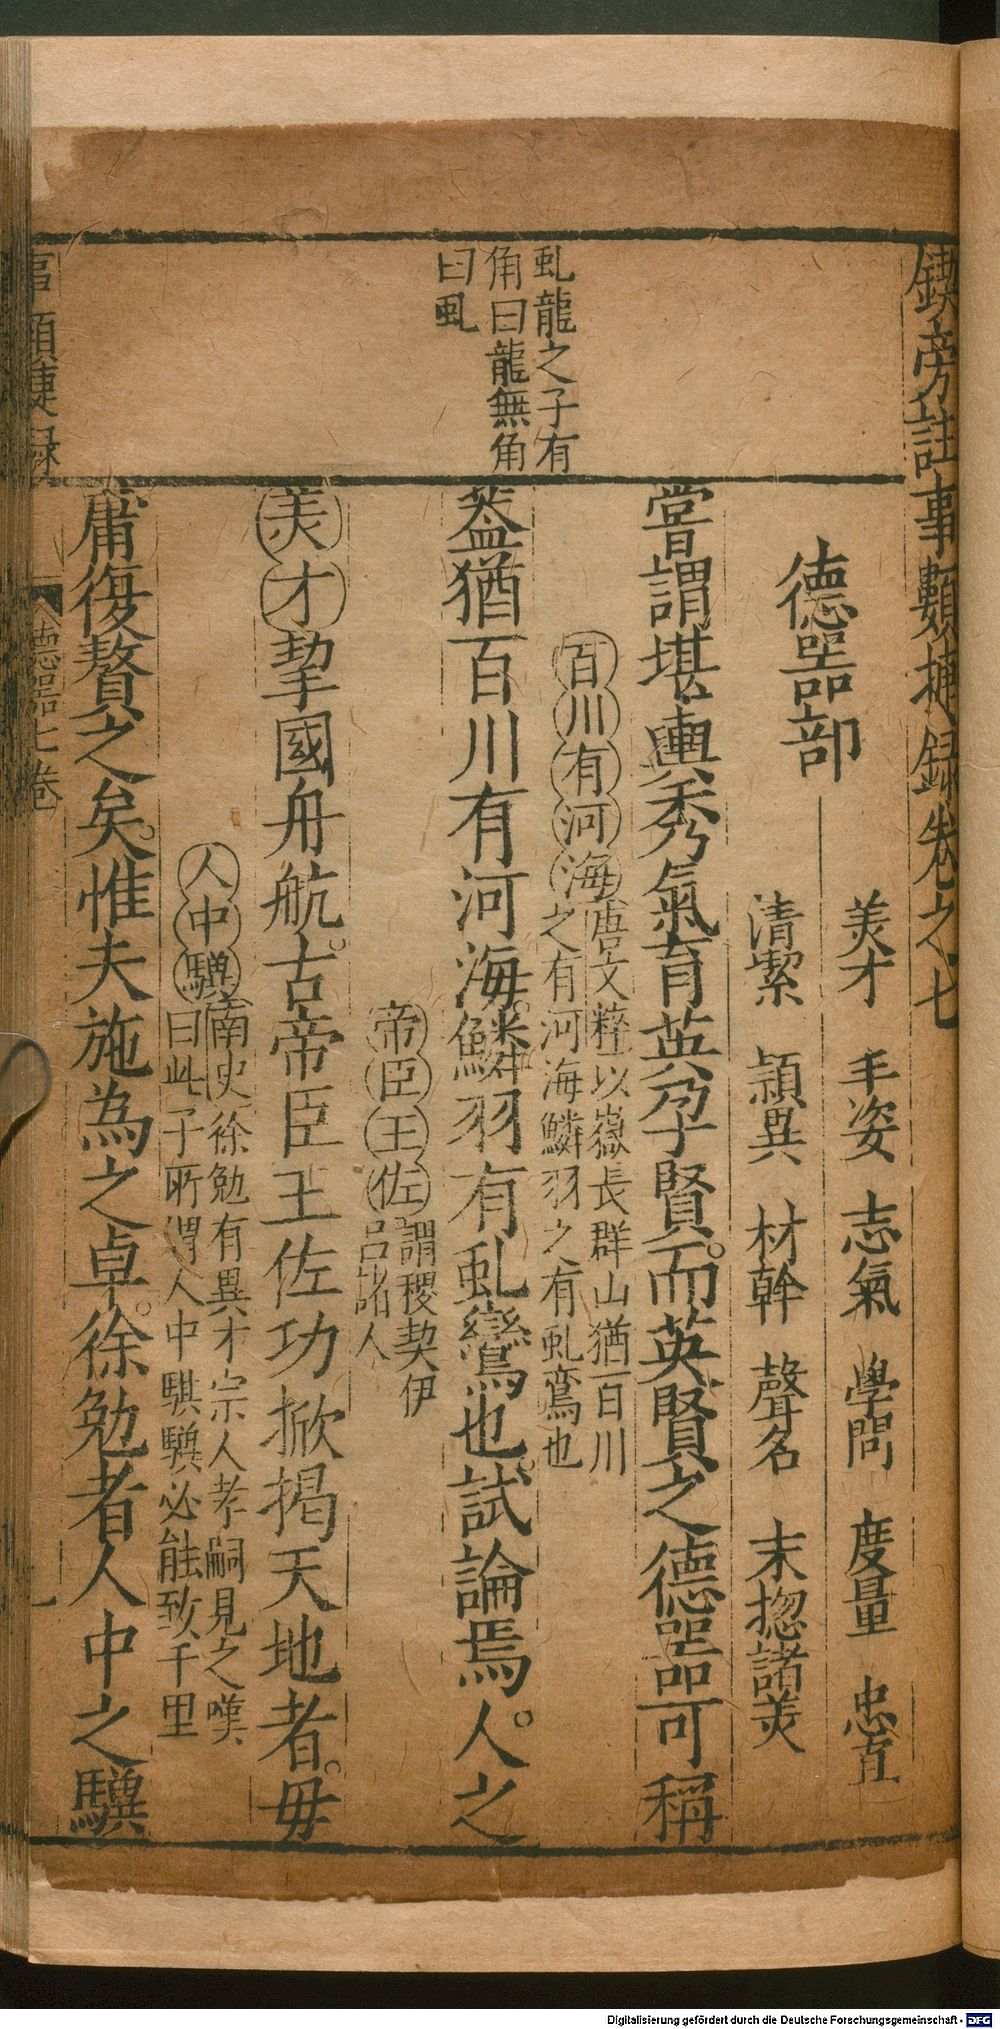 鍥旁註事類捷録卷之七
德噐部
羙才 丰姿 志氣 學問 度量 忠直
清潔 頴異 材幹 聲名 末揔諸羙
虬龍之子有
角曰龍無角
曰虬
嘗謂堪輿秀氣育英孕賢而英賢之德噐可稱
百川有河海唐文粹以嶽長群山猶百川
之有河海鱗羽之有虬鸞也
葢猶百川有河海鱗羽有虬鸞也試論焉人之
帝臣王佐謂稷契伊
呂諸人
羙才挈國舟航古帝臣王佐功掀揭天地者毋
人中騏南史徐勉有異才宗人孝嗣見之嘆
曰此子所謂人中騏驥必能致千里
庸復贅之矣惟夫施為之卓徐勉者人中之驥
事類捷録
德噐七卷
一
Digitalisierung gefördert durch die Deutsche Forschungsgemeinschaft - DFG